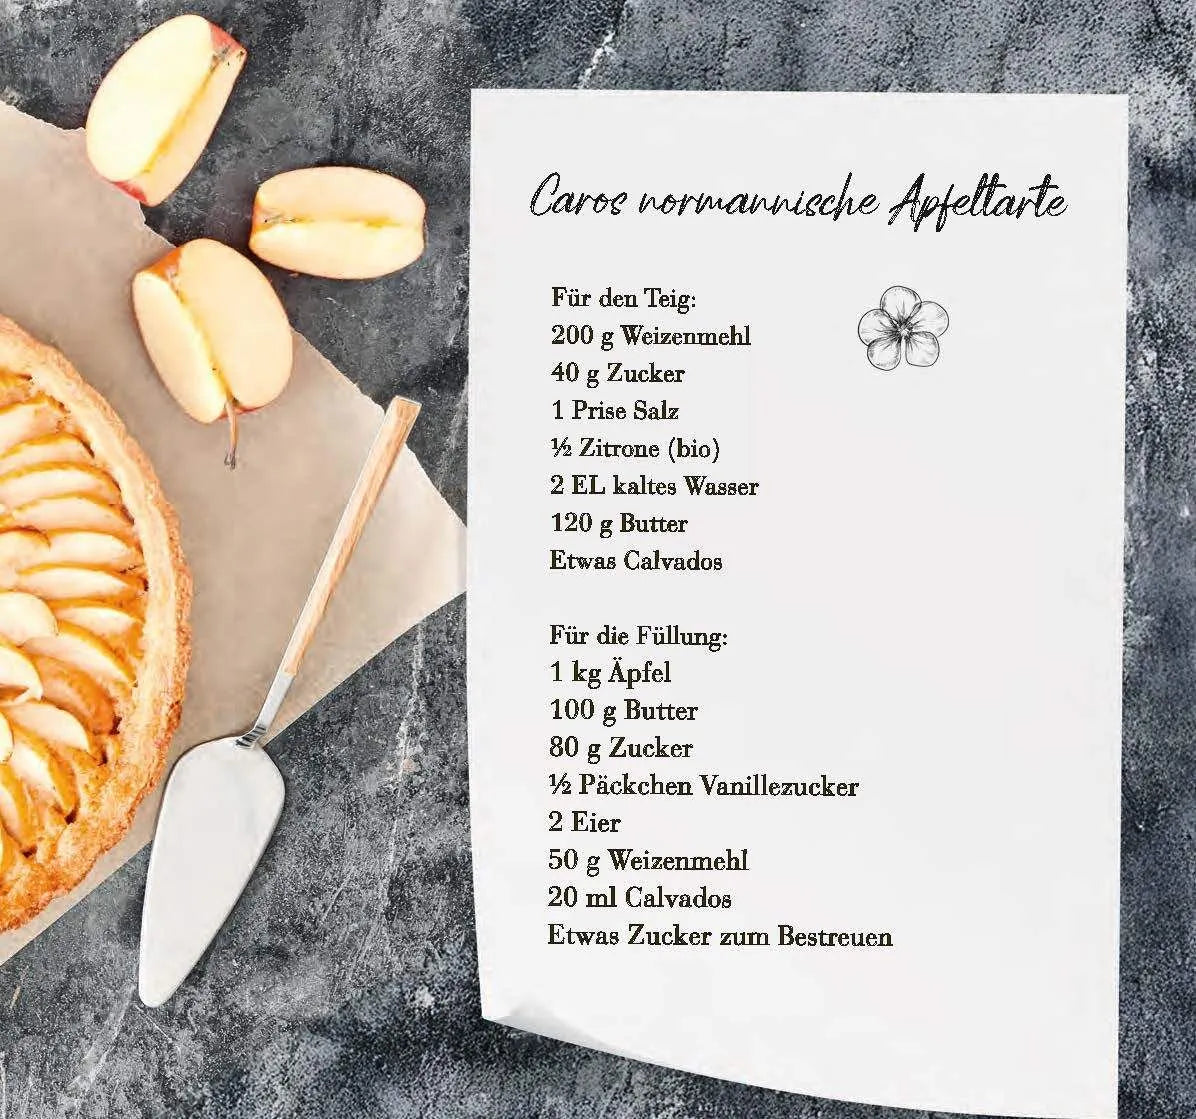 Caros normannische Apfeltarte
Für den Teig:
200 g Weizenmehl
40 g Zucker
1 Prise Salz
½ Zitrone (bio)
2 EL kaltes Wasser
120 g Butter
Etwas Calvados
Für die Füllung:
1 kg Äpfel
100 g Butter
80 g Zucker
½ Päckchen Vanillezucker
2 Eier
50 g Weizenmehl
20 ml Calvados
Etwas Zucker zum Bestreuen